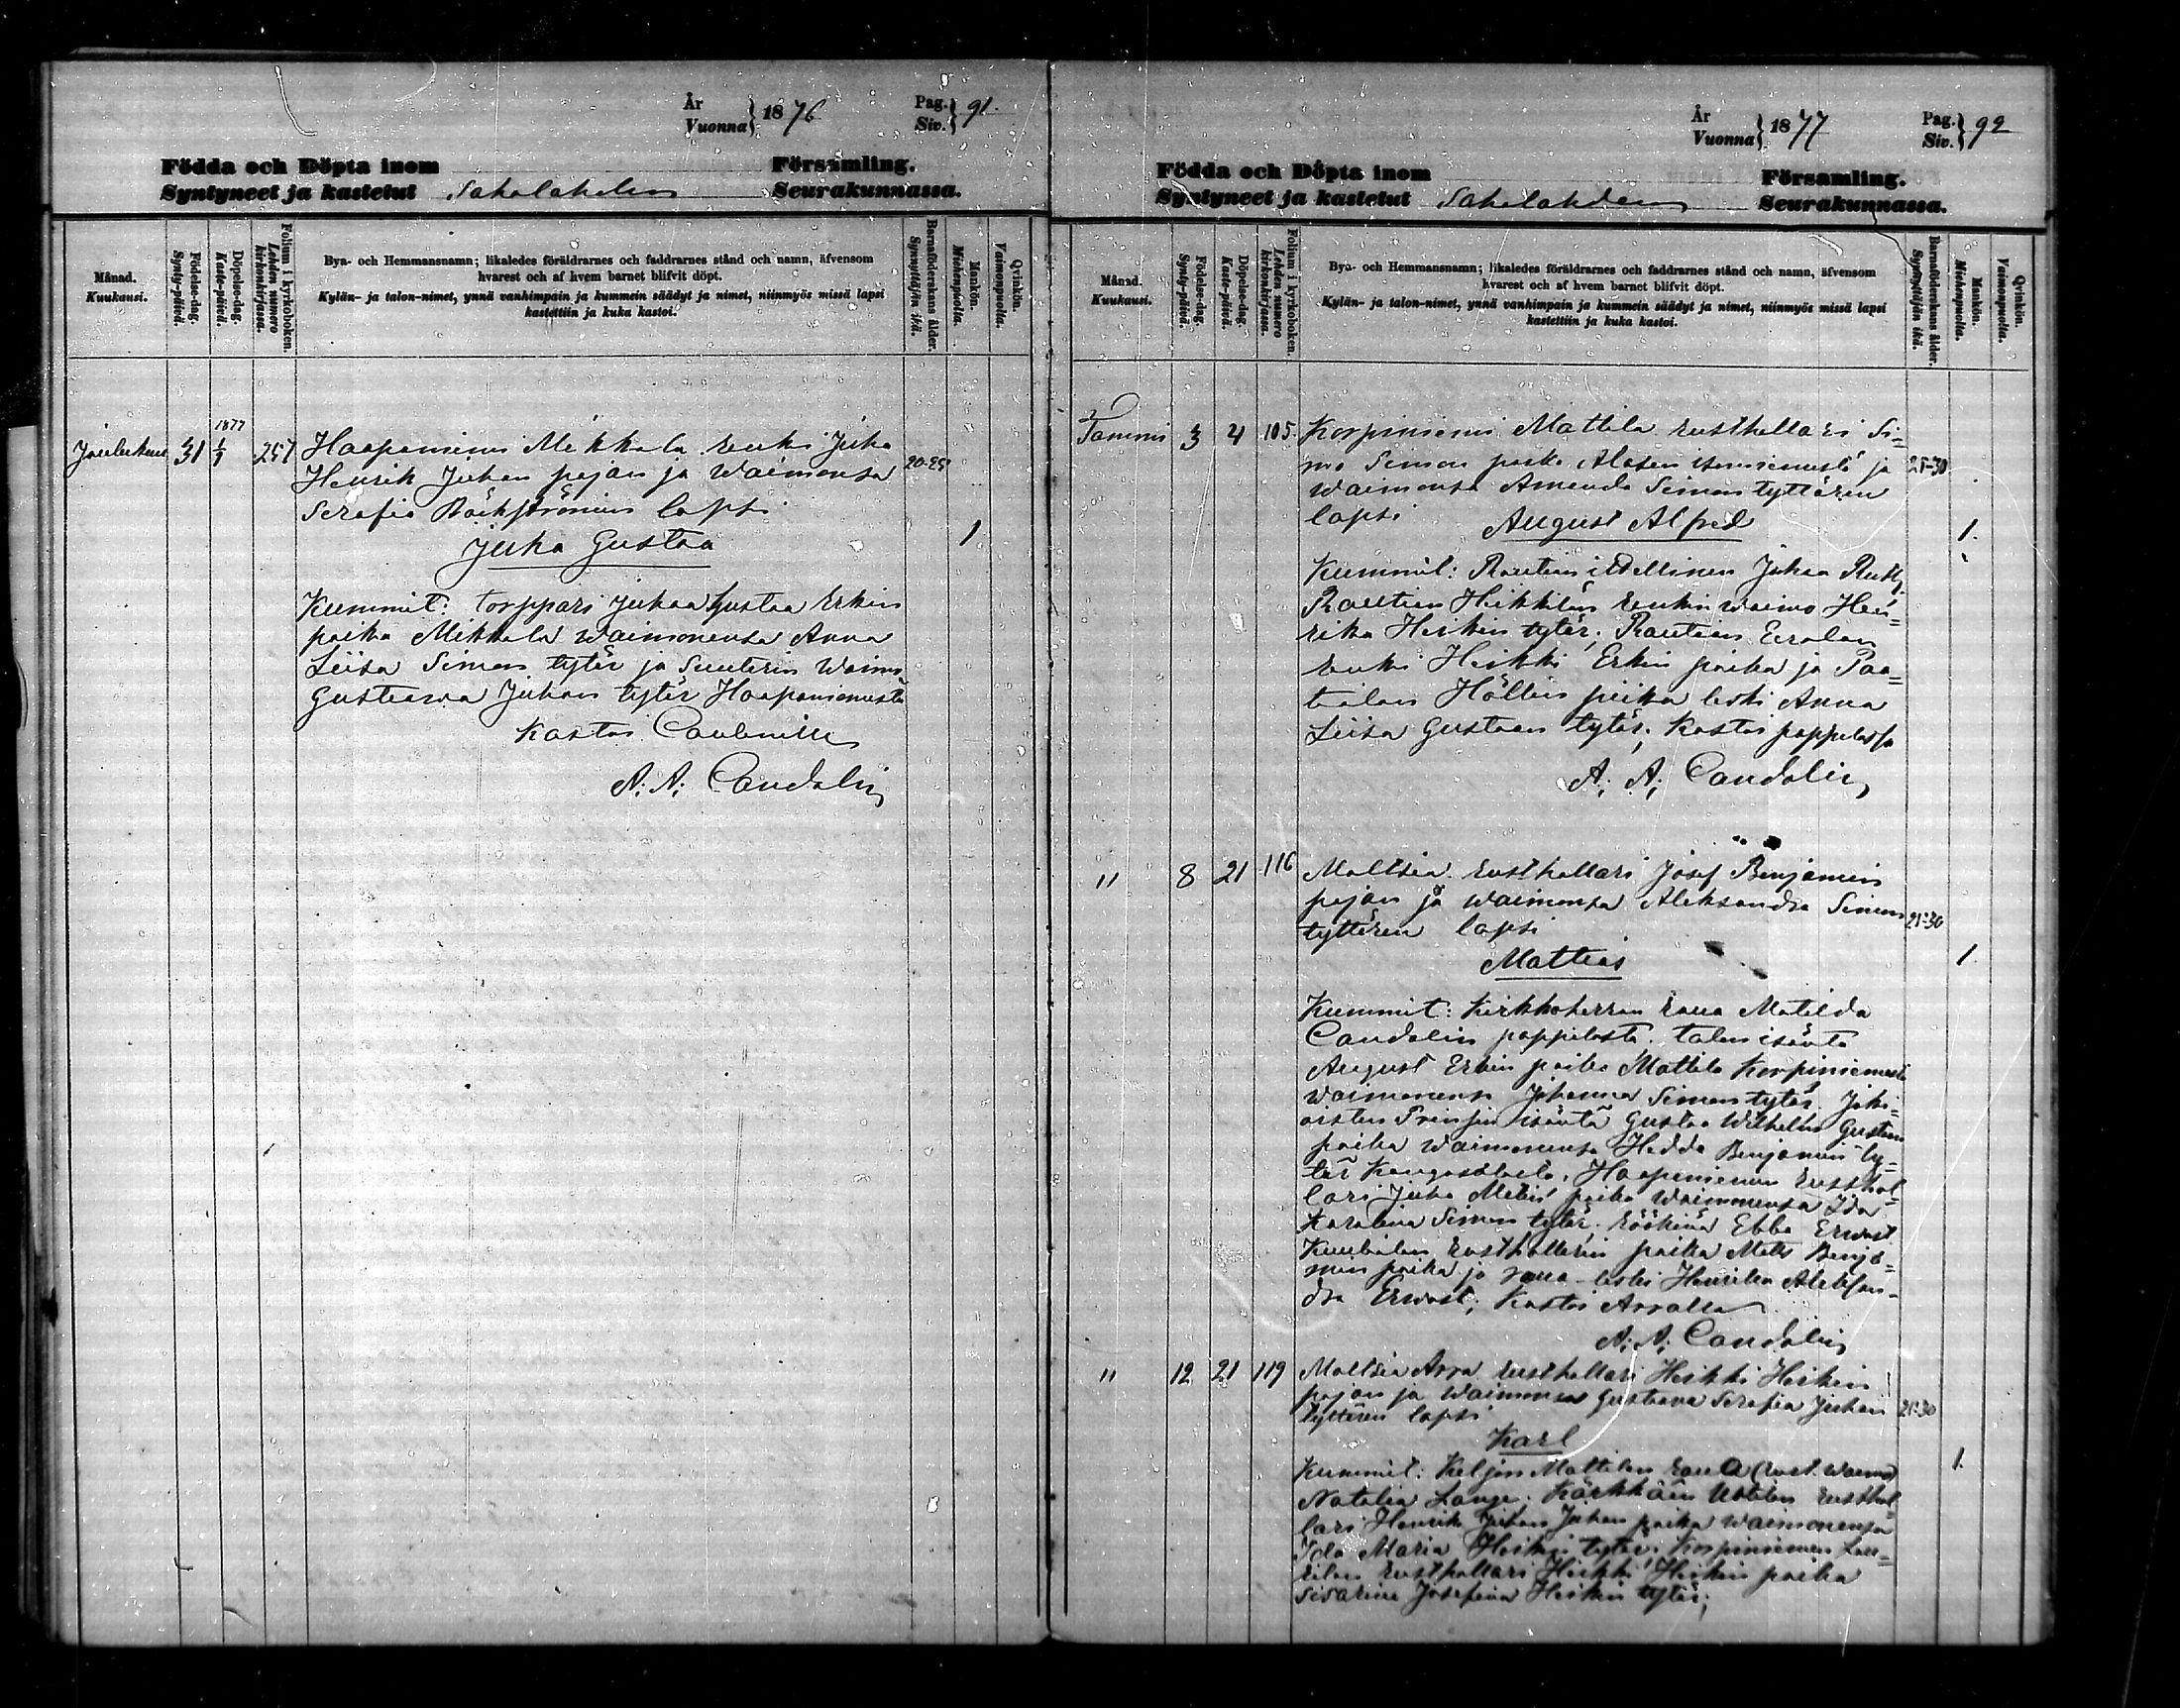 År
Vuonna } 1876
Pag.
Siv. } 91.
Födda och Döpta inom Församling.
Syntyneet ja kastetut Sahalahden Seurakunnassa.
Månad.
Kuukausi.
Födelse-dag.
Synty-päivä.
Döpelse-dag.
Kaste-päivä.
Folium i kyrkoboken.
Lehden numero
kirkonkirjassa.
Bya- och Hemmansnamn; likaledes föräldrarnes och faddrarnes stånd och namn, äfvensom
hvarest och af hvem barnet blifvit döpt.
Kylän- ja talon-nimet, ynnä vanhimpain ja kummein säädyt ja nimet, niinmyös missä lapsi
kastettiin ja kuka kastoi.
Barnaföderskans ålder.
Synnyttäjän ikä.
Mankön.
Miehenpuolta.
Qvinkön.
Vaimonpuolta.
1877
Joulukuu 31 1/1 257 Haapaniemi Mikkola renki Juha
Henrik Juhan pojan ja waimonsa 20-25
Serafia Bäckströmin lapsi
Juha Gustaa 1
Kummit: torppari Juhaa Gustaa Erkin
poika Mikkola waimonensa Anna
Liisa Simon tytär ja Suutarin waimo
Gustaava Juhan tytär Haapaniemestä
Kastoi
A. A. Candolin
År
Vuonna } 1877
Pag.
Siv. } 92
Födda och Döpta inom Församling.
Syntyneet ja kastetut Sahalahden Seurakunnassa.
Månad.
Kuukausi.
Födelse-dag.
Synty-päivä.
Döpelse-dag.
Kaste-päivä.
Folium i kyrkoboken.
Lehden numero
kirkonkirjassa.
Bya- och Hemmansnamn; likaledes föräldrarnes och faddrarnes stånd och namn, äfvensom
hvarest och af hvem barnet blifvit döpt.
Kylän- ja talon-nimet, ynnä vanhimpain ja kummein säädyt ja nimet, niinmyös missä lapsi
kastettiin ja kuka kastoi.
Barnaföderskans ålder.
Synnyttäjän ikä.
Mankön.
Miehenpuolta.
Qvinkön.
Vaimonpuolta.
Tammi 3 4 105. Korpiniemi Mattila rusthollari Si=
mo Simon ja 25-30
waimonsa Amanda Simon tyttären
lapsi August Alfred 1.
Kummit: Rautian Juhaa
Rautian Heikkilän renkin waimo Hen=
rika Heikin tytär; Rautian Eerolan
renki Heikki Erkin poika ja Paa=
talan Höllin leski Anna
Liisa Gustaan tytär; Kastoi pappilassa
A. A. Candolin
" 8 21 116 Moltsia rusthollari Josef Benjamin
pojan ja waimonsa Aleksandra Simon 25-30
tyttären lapsi
Mattias 1.
Kummit: Kirkkoherran rouva Matilda
Candolin pappilasta. talon isäntä
August Erkin poika Mattila Korpiniemestä
waimonensa Johanna Simon tytär. Joki=
oisten Prinjin isäntä Gustaa Wilhelm Gustaan
poika waimonensa Hedda Benjamin ty=
tär Kangasalta, Haapaniemen rusthol=
lari Juha Matin poika waimonensa Ida
Karolina Simon tytär. röökinä Ebba Erwast
rusthollarin poika Mats Benja=
min poika ja rouva-leski Henrika Aleksan=
dra Erwast; Kastoi Arralla
A. A. Candolin
" 12 21 119 Moltsia Arra rusthollari Heikki Heikin
pojan ja waimonsa Gustaava Serafia Juhan 25-30
tyttären lapsi
Karl 1.
Kummit: Keljon Mattilan rouva (rust. waimo)
Natalia Lange; Kärkkäin Uotilan rusthol=
lari Henrik Juhan Juhan poika waimonensa
Ida Maria Heikin tytär. Korpiniemen
rusthollari Heikki Heikin poika
sisarine Josefina Heikin tytär;